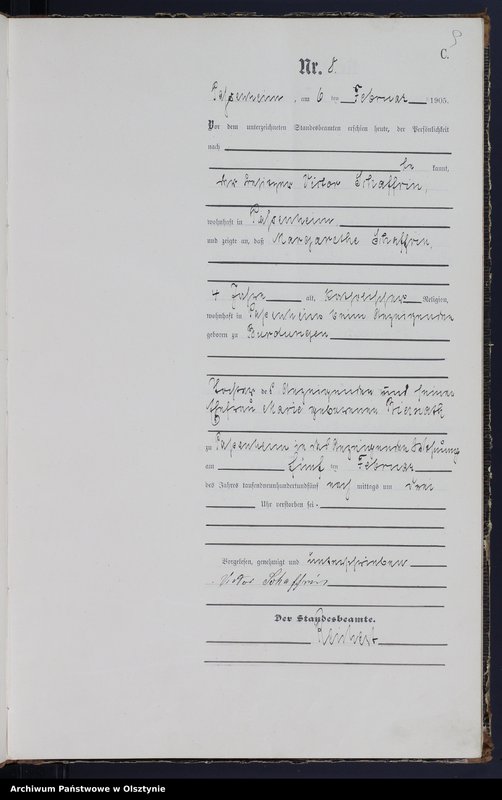 C.
Nr. 8.
Passenheim, am 6 ten Februar 1905.
Vor dem unterzeichneten Standesbeamten erschien heute, der Persönlichkeit
nach
be kannt,
der Besitzer Victor Schaffrin,
wohnhaft in Passenheim,
und zeigte an, daß Margarethe Schaffrin,
4 Jahre alt, katholischer Religion,
wohnhaft in Passenheim beim Anzeigenden
geboren zu Burdungen
Tochter des Anzeigenden und seiner
Ehefrau Marie geborenen
zu Passenheim in des Anzeigenden Wohnung
am fünf ten Februar
des Jahres tausendneunhundertundfünf nach mittags um drei
Uhr verstorben sei.
Vorgelesen, genehmigt und unterschrieben
Victor Schaffrin
Der Standesbeamte.
Archiwum Państwowe w Olsztynie